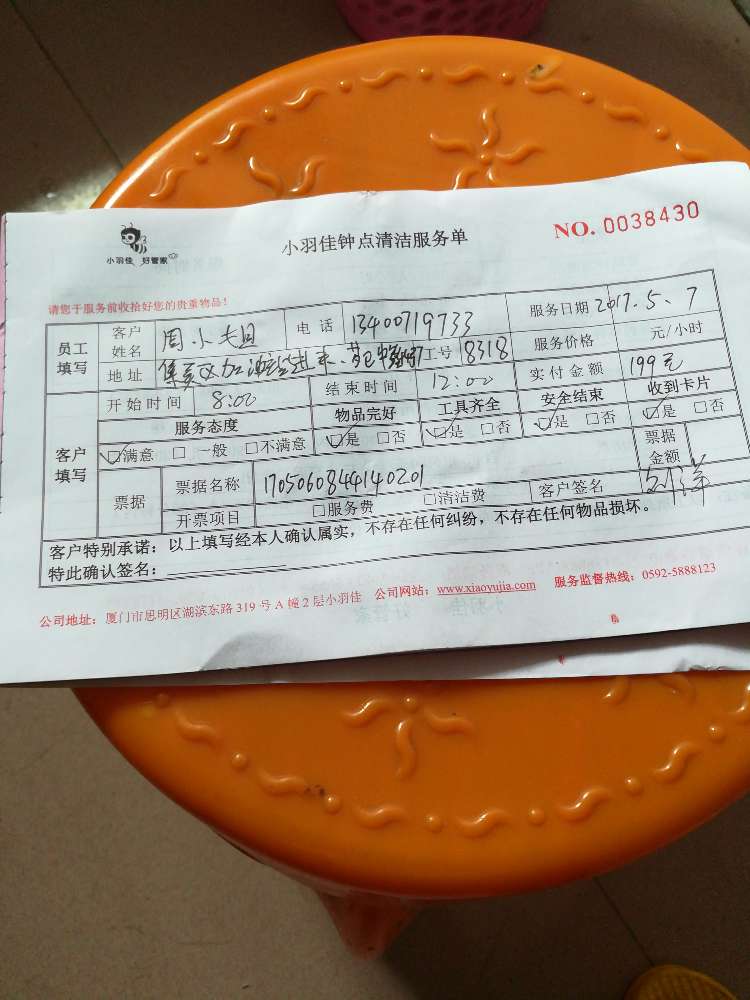 小羽佳 好管家
小羽佳钟点清洁服务单
NO. 0038430
请您于服务前收拾好您的贵重物品!
员工填写 客户姓名 周小姐 电话 13400719733 服务日期 2017.5.7
地址 集美区加油站 工号 8318 服务价格 元/小时
开始时间 8:00 结束时间 12:00 实付金额 199元
客户填写 服务态度 物品完好 工具齐全 安全结束 收到卡片
☑满意 □一般 □不满意 ☑是 □否 ☑是 □否 ☑是 □否 ☑是 □否
票据 票据名称 1705060844140201 票据金额
开票项目 □服务费 □清洁费 客户签名
客户特别承诺:以上填写经本人确认属实,不存在任何纠纷,不存在任何物品损坏。
特此确认签名:
公司地址:厦门市思明区湖滨东路 319 号 A 幢 2 层小羽佳 公司网站:www.xiaoyujia.com 服务监督热线:0592-5888123